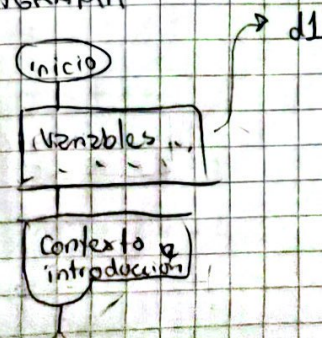 d1
inicio
variables ...
Contexto e
introducción